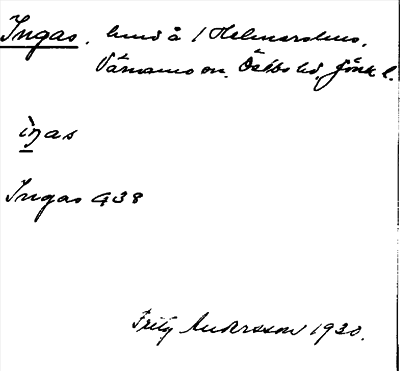 Ingas. hmd å 1 Helmershus,
Värnamo sn. Östbo hd. Jönk l.
ìŋas
Ingas G38
Fritz Andersson 1930.